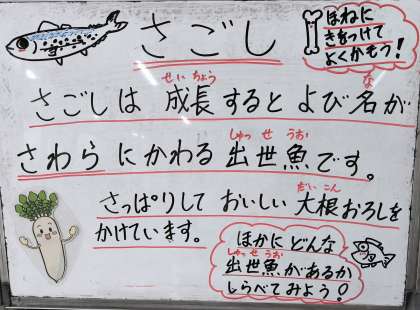 さごし
ほねに
きをつけて
よくかもう！
せいちょう
な
さごしは 成長すると よび名が
しゅっ せ うお
さわらにかわる 出世魚です。
だい こん
さっぱりして おいしい 大根おろしを
かけています。
ほかに どんな
しゅっ せ うお
出世魚があるか
しらべてみよう！